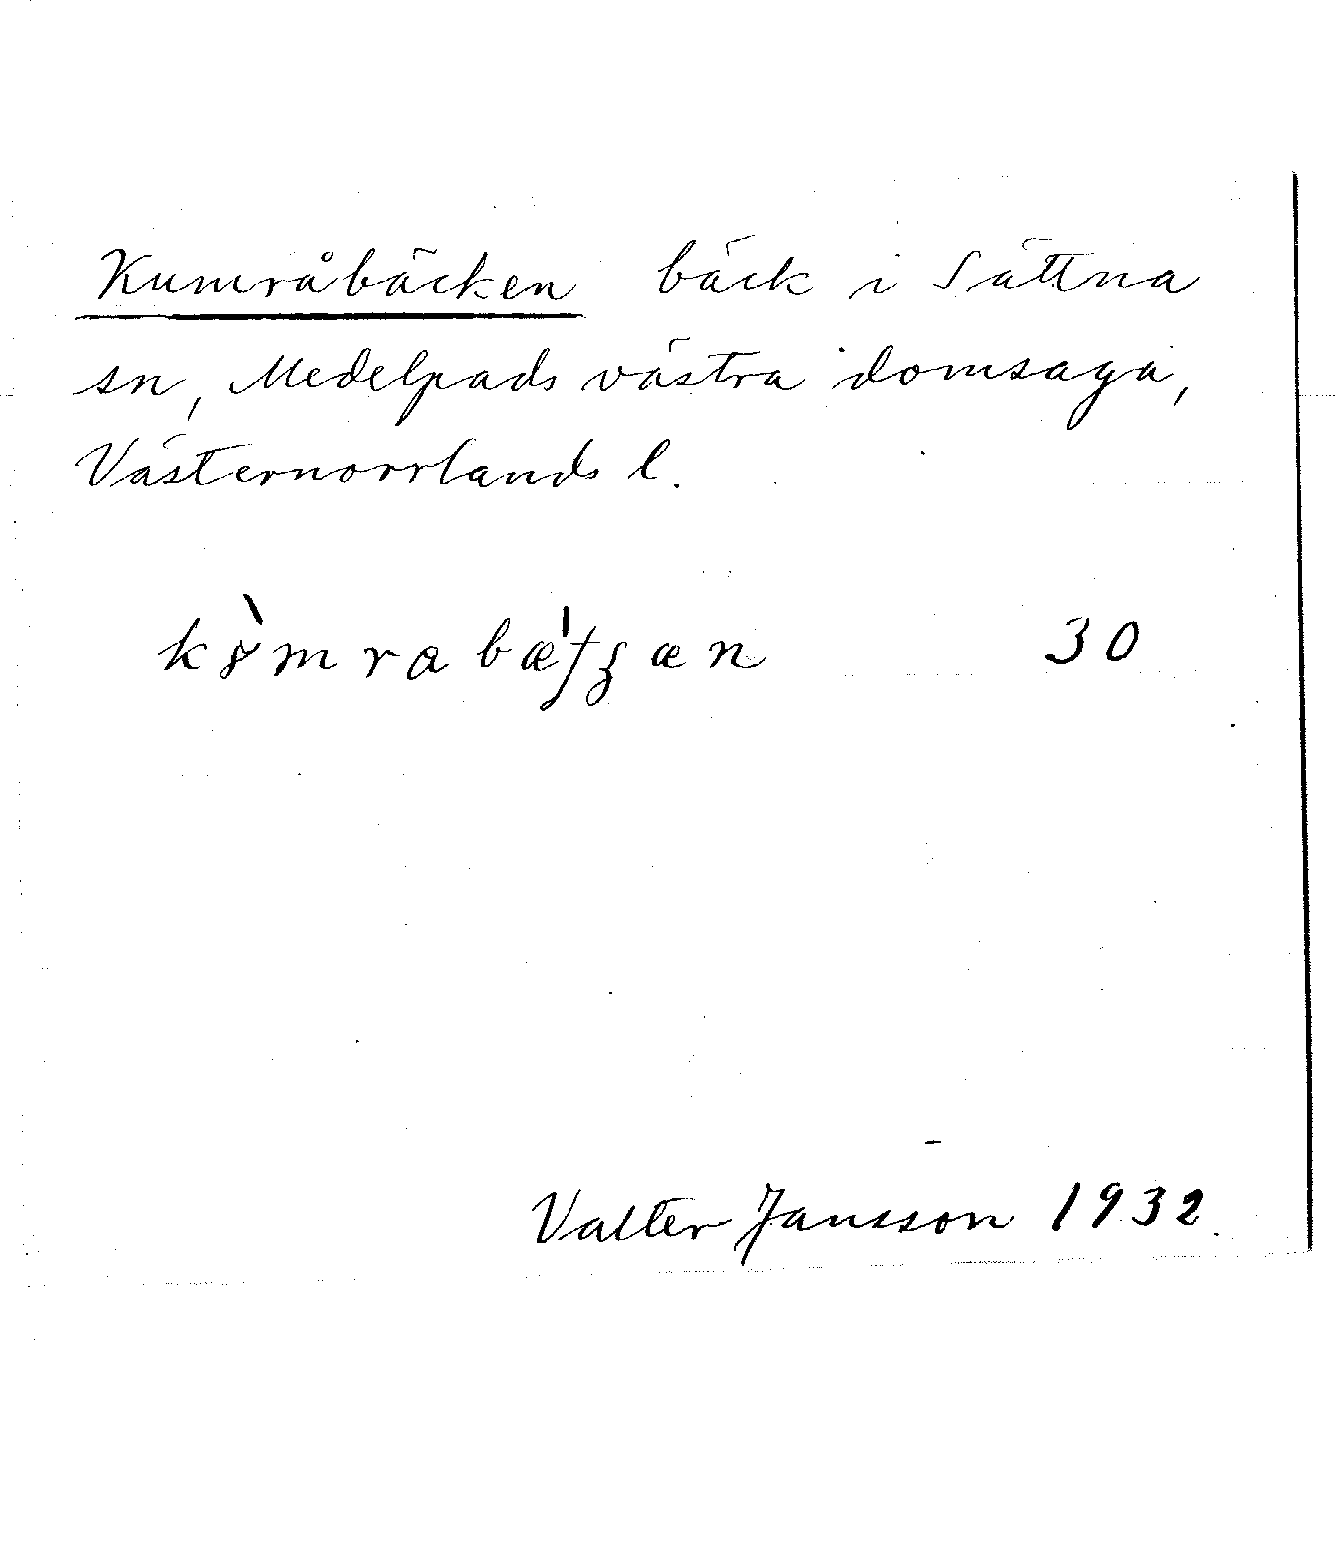 Kumråbäcken bäck i Sättna
sn, Medelpads västra domsaga,
Västernorrlands l.
30
Valter Jansson 1932